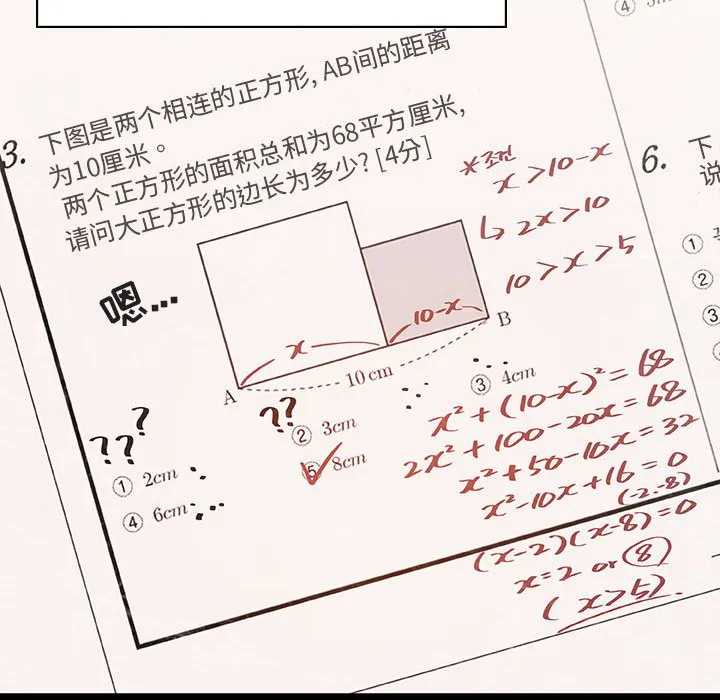 3. 下图是两个相连的正方形, AB间的距离
为10厘米。
两个正方形的面积总和为68平方厘米,
请问大正方形的边长为多少? [4分]
嗯...
A
x
10-x
B
10 cm
*조건
x > 10-x
↳ 2x > 10
10 > x > 5
??
?
??
① 2cm
② 3cm
③ 4cm
④ 6cm
⑤ 8cm
x² + (10-x)² = 68
2x² + 100 - 20x = 68
x² + 50 - 10x = 32
x² - 10x + 16 = 0
(-2.-8)
(x-2)(x-8) = 0
x = 2 or 8
(x>5)
④
6.
下
说
①
②
③